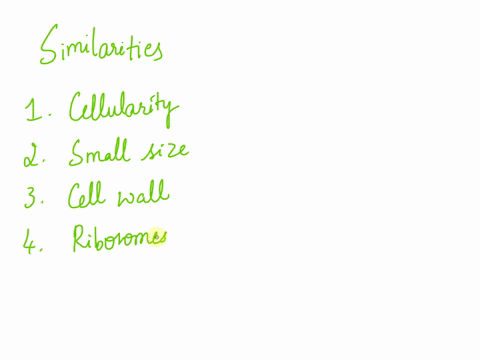 Similarities
1. Cellularity
2. Small size
3. Cell wall
4. Ribosomes